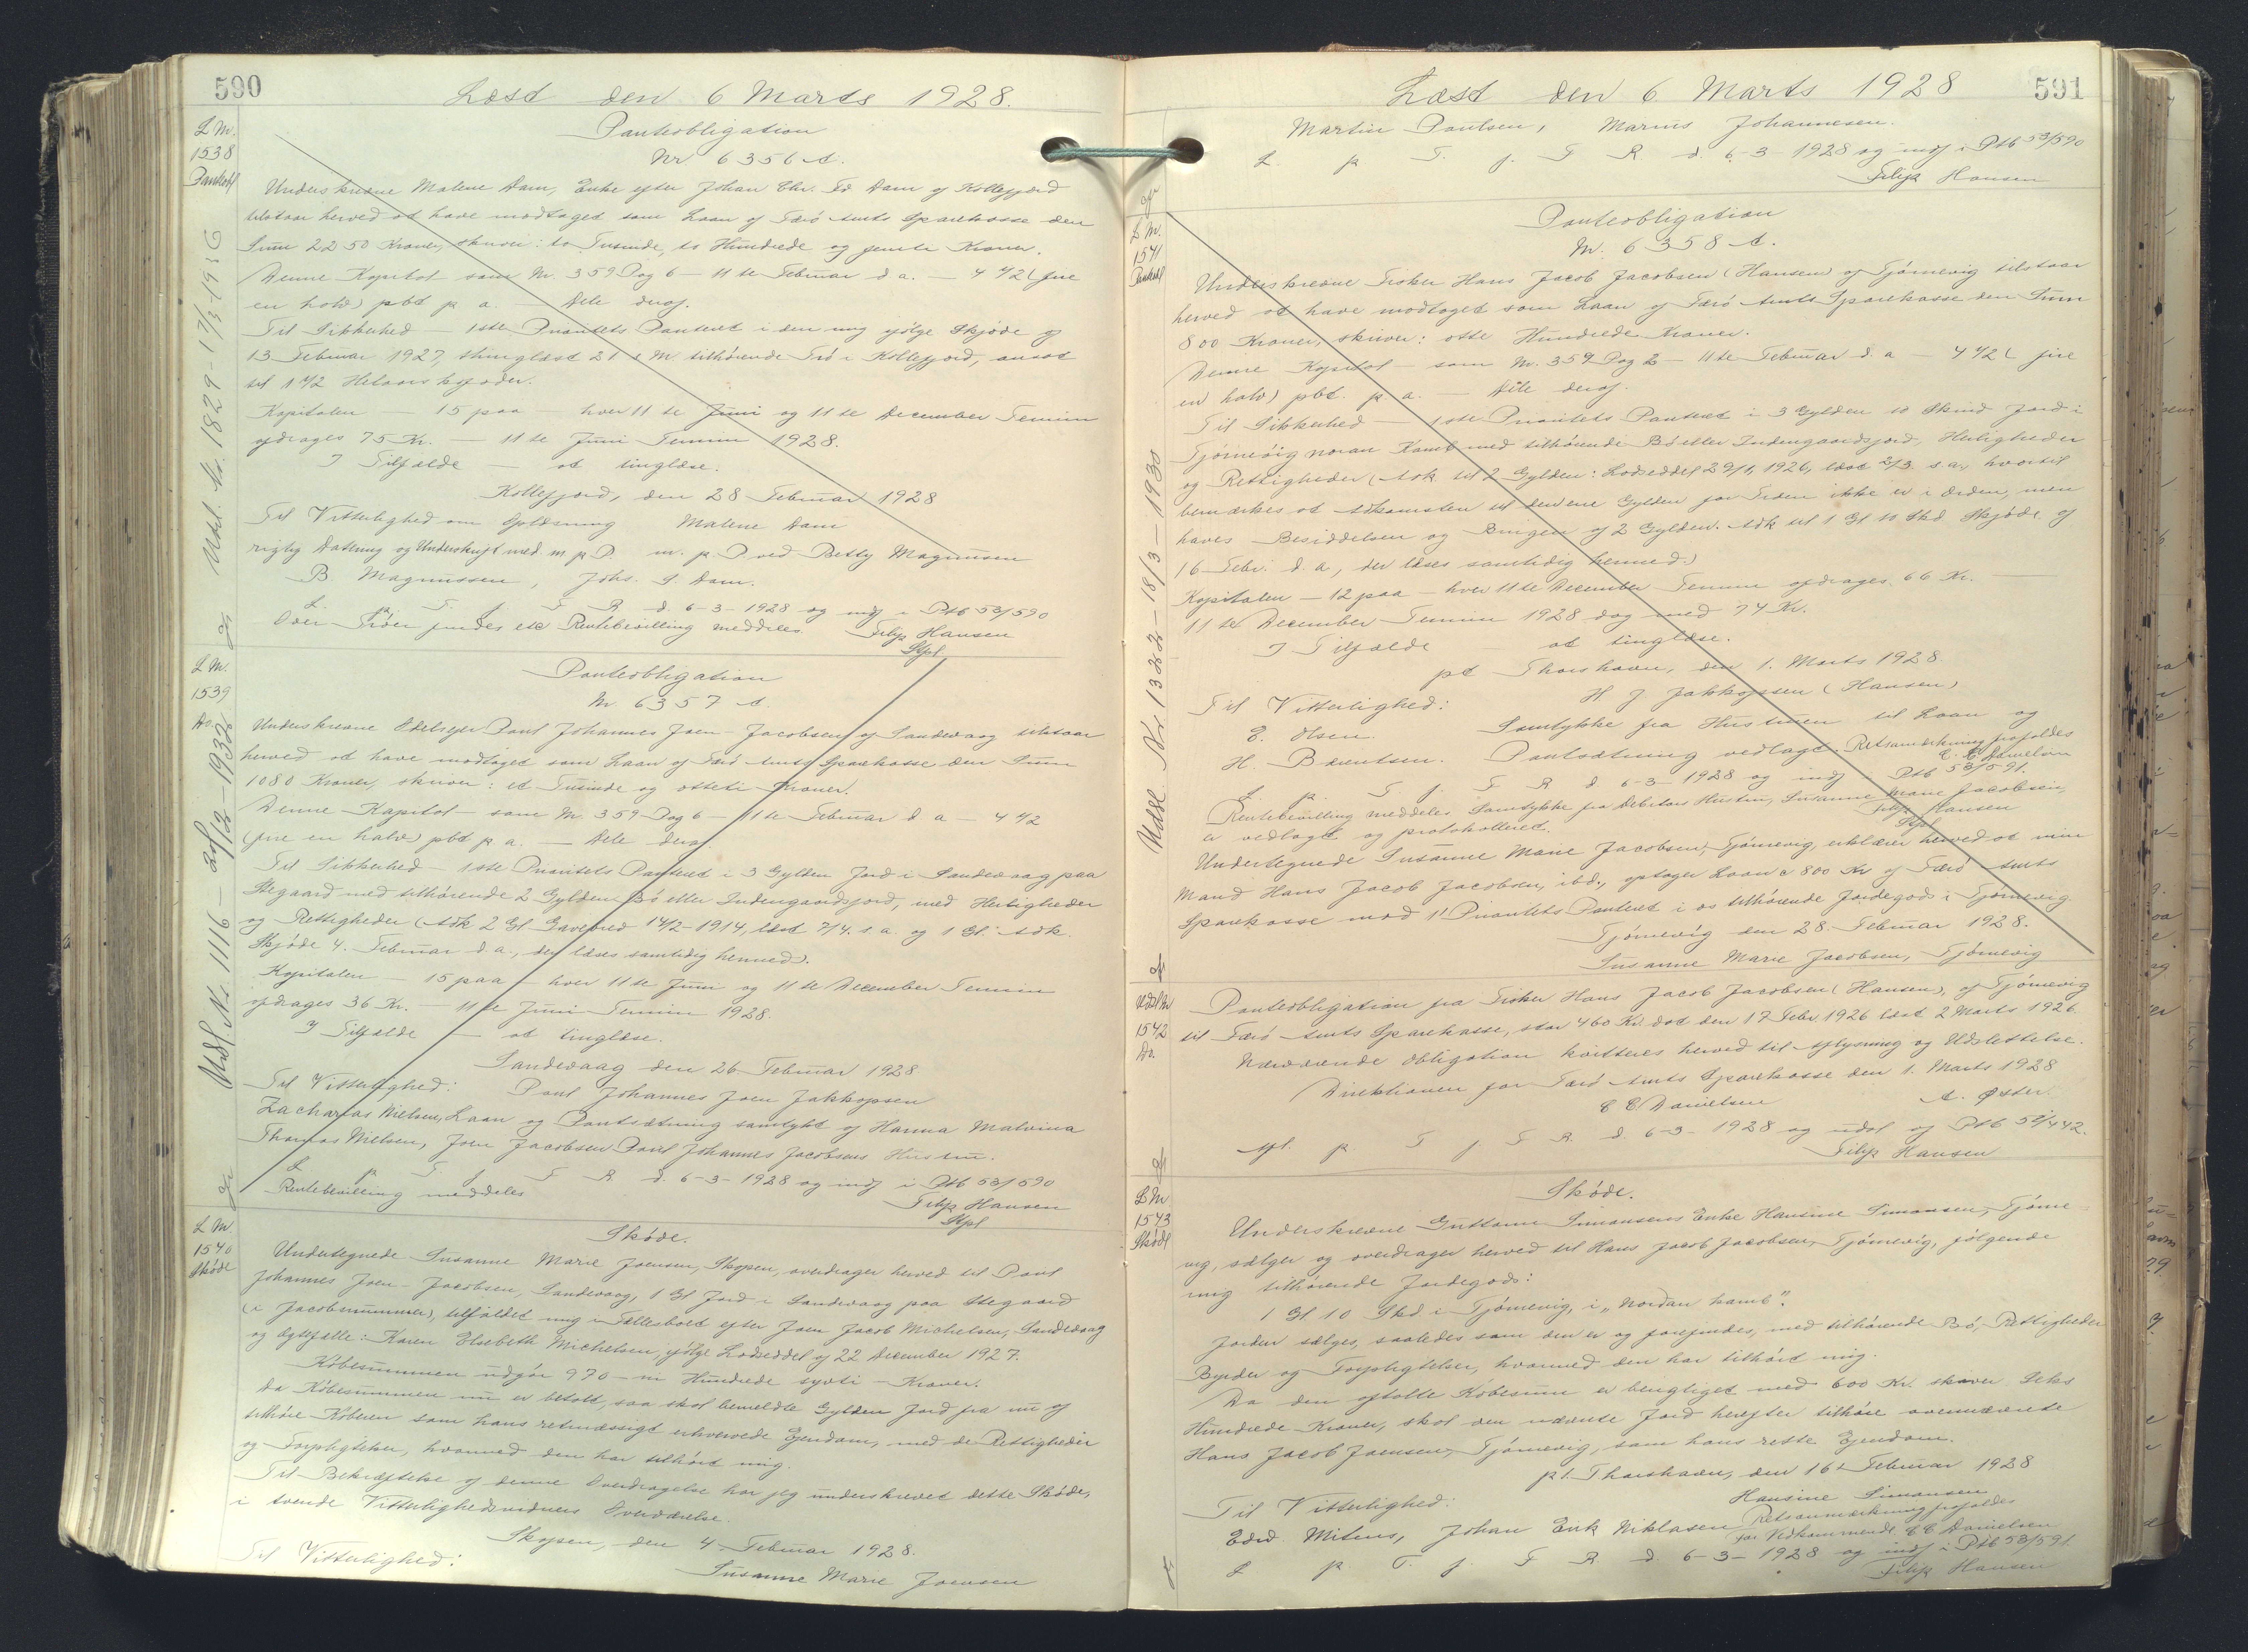 590
Læst den 6 Marts 1928.
L Nr.
1538
Panteobl
Panteobligation
Nr 6356 A.
Underskrevne Malene Dam, Enke efter Johan Chr. Fr. Dam af Kollefjord
tilstaar herved at have modtaget som Laan af Færø Amts Sparekasse den
Sum 2250 Kroner, skriver: to Tusinde, to Hundrede og femti Kroner.
Denne Kapital som Nr. 359 Pag 6 — 11te Februar d a. — 4 1/2 (fire
en halv) pbt p a. — Dele deraf.
Til Sikkerhed — 1ste Prioritets Panteret i den mig ifølge Skjøde af
13 Februar 1927, thinglæst 21 s M. tilhørende Trø i Kollefjord, ansat
til 1 1/2 Helaars koføder.
Kapitalen — 15 paa — hver 11te Juni og 11te December Termin
afdrages 75 Kr. — 11te Juni Termin 1928.
I Tilfælde — at tinglæse.
Kollefjord, den 28 Februar 1928
Til Vitterlighed om Oplæsning Malene Dam
rigtig Datering og Underskrift med m. p. P. m. p. P ved Betty Magnusen
B. Magnussen, Johs. S. Dam.
L. p. T. f. F R d. 6-3-1928 og indf i Ptb 53/590
Over Trøer findes ikke Rentebevilling meddeles Filip Hansen
Stpl.
Udsl. Nr. 1829 - 17/3-1936
L Nr.
1539
Do.
Panteobligation
Nr 6357 A.
Underskrevne Odelsejer Poul Johannes Joen-Jacobsen af Sandevaag tilstaar
herved at have modtaget som Laan af Færø Amts Sparekasse den Sum
1080 Kroner, skriver: et Tusinde og otteti Kroner.
Denne Kapital — som Nr. 359 Pag 6 — 11te Februar d a — 4 1/2
(fire en halv) pbt p a. — Dele deraf
Til Sikkerhed — 1ste Prioritets Panteret i 3 Gylden Jord i Sandevaag paa
Stegaard med tilhørende 2 Gylden Bø eller Indengaardsjord, med Herligheder
og Rettigheder (Adk 2 Gl Gavebrev 14/2-1914, læst 7/4. s. a. og 1 Gl. Adk.
Skjøde 4. Februar d. a., der læses samtidig hermed).
Kapitalen — 15 paa — hver 11te Juni og 11te December Termin
afdrages 36 Kr. — 11te Juni Termin 1928.
I Tilfælde — at tinglæse.
Sandevaag den 26 Februar 1928
Til Vitterlighed: Poul Johannes Joen Jakkopsen
Zacharias Nielsen, Laan og Pantsætning samtykt af Hanna Malvina
Thomas Nielsen, Joen Jacobsen Poul Johannes Jacobsens Hustru.
L. p. T. f. F R d. 6-3-1928 og indf i Ptb 53/590
Rentebevilling meddeles Filip Hansen
Stpl
Udsl Nr 1116 — 20/12-1932
L Nr.
1540
Skøde
Skøde.
Undertegnede Susanne Marie Joensen, Skopen, overdrager herved til Poul
Johannes Joen-Jacobsen, Sandevaag, 1 Gl Jord i Sandevaag paa Stegaard
(i Jacobsnummer), tilfaldet mig i Fællesbolet efter Joen Jacob Michelsen, Sandevaag
og Ægtefælle: Karen Elsebeth Michelsen, ifølge Lodseddel af 22 December 1927.
Købesummen udgør 970 — ni Hundrede syvti — Kroner.
Da Købesummen nu er betalt, saa skal bemeldte Gylden Jord fra nu af
tilhøre Køberen som hans retmæssigt erhvervede Ejendom, med de Rettigheder
og Forpligtelser, hvormed den har tilhørt mig.
Til Bekræftelse af denne Overdragelse har jeg underskrevet dette Skøde,
i tvende Vitterlighedsvidners Overværelse.
Skopen, den 4. Februar 1928.
Til Vitterlighed: Susanne Marie Joensen
591
Læst den 6 Marts 1928
Martin Poulsen, Marius Johannesen.
L. p T. f. F R d. 6-3-1928 og indf i Ptb 53/590
Filip Hansen
L Nr.
1541
Panteobl
Panteobligation
Nr. 6358 A.
Underskrevne Fisker Hans Jacob Jacobsen (Hansen) af Tjørnevig tilstaar
herved at have modtaget som Laan af Færø Amts Sparekasse den Sum
800 Kroner, skriver: otte Hundrede Kroner.
Denne Kapital — som Nr. 359 Pag 2 — 11te Februar d. a — 4 1/2 (fire
en halv) pbt. p a. — Dele deraf.
Til Sikkerhed — 1ste Prioritets Panteret i 3 Gylden 10 Skind Jord i
Tjørnevig noran Kamb med tilhørende Bø eller Indengaardsjord, Herligheder
og Rettigheder (Adk til 2 Gylden: Lodseddel 29/1. 1926, læst 2/3. s a., hvortil
bemærkes at Adkomsten til den ene Gylden for Tiden ikke er i Orden, men
haves Besiddelsen og Brugen af 2 Gylden. Adk til 1 Gl 10 Skd Skjøde af
16 Febr. d. a., der læses samtidig hermed.)
Kapitalen — 12 paa — hver 11te December Termin afdrages 66 Kr.
11te December Termin 1928 dog med 74 Kr.
I Tilfælde — at tinglæse.
pt Thorshavn, den 1. Marts 1928.
Til Vitterlighed: H. J. Jakkopssen (Hansen)
E. Olsen. Samtykke fra Hustruen til Laan og
H. Bærentsen. Pantsætning vedlagt. Retsanmærkning frafaldes
C. C. Danielsen
L. p. T. f. F R d 6-3-1928 og indf i Ptb 53/591.
Rentebevilling meddeles Samtykke fra Debitors Hustru, Susanne Marie Jacobsen,
er vedlagt og protokolleret. Filip Hansen
Stpl
Undertegnede Susanne Marie Jacobsen, Tjørnevig, erklærer herved at min
Mand Hans Jacob Jacobsen, ibd., optager Laan a 800 Kr af Færø Amts
Sparekasse mod 1' Prioritets Panteret i os tilhørende Jordegods i Tjørnevig
Tjørnevig den 28. Februar 1928.
Susanne Marie Jacobsen, Tjørnevig
Udsl Nr 1322 — 18/3 — 1930
Udsl Nr
1542
Do.
Panteobligation fra Fisker Hans Jacob Jacobsen (Hansen), af Tjørnevig
til Færø Amts Sparekasse, stor 460 Kr. dat den 17 Febr. 1926 læst 2 Marts 1926.
Nærværende Obligation kvitteres herved til Aflysning og Udslettelse.
Direktionen for Færø Amts Sparekasse den 1. Marts 1928
C C Danielsen A. Øster.
Afl. p T f. F R. d. 6-3-1928 og udsl af Ptb 52/442.
Filip Hansen
L Nr
1543
Skøde
Skøde.
Underskrevne Guttorm Simonsens Enke Hansine Simonsen, Tjørne-
vig, sælger og overdrager herved til Hans Jacob Jacobsen, Tjørnevig, følgende
mig tilhørende Jordegods:
1 Gl. 10 Skd. i Tjørnevig, i „Nordan kamb".
Jorden sælges, saaledes som den er og forefindes, med tilhørende Bø, Rettigheder
Byrder og Forpligtelser, hvormed den har tilhørt mig.
Da den aftalte Købesum er berigtiget med 600 Kr. skriver Seks
Hundrede Kroner, skal den nævnte Jord herefter tilhøre ovennævnte
Hans Jacob Joensen, Tjørnevig, som hans rette Ejendom.
pt. Thorshavn, den 16' Februar 1928
Til Vitterlighed: Hansine Simonsen
Edvd Mitens, Johan Eirik Niklasen Retsanmærkning frafaldes
for Vedkommende C C Danielsen
L p T. f. F R. d. 6-3-1928 og indf i Ptb 53/591.
Filip Hansen